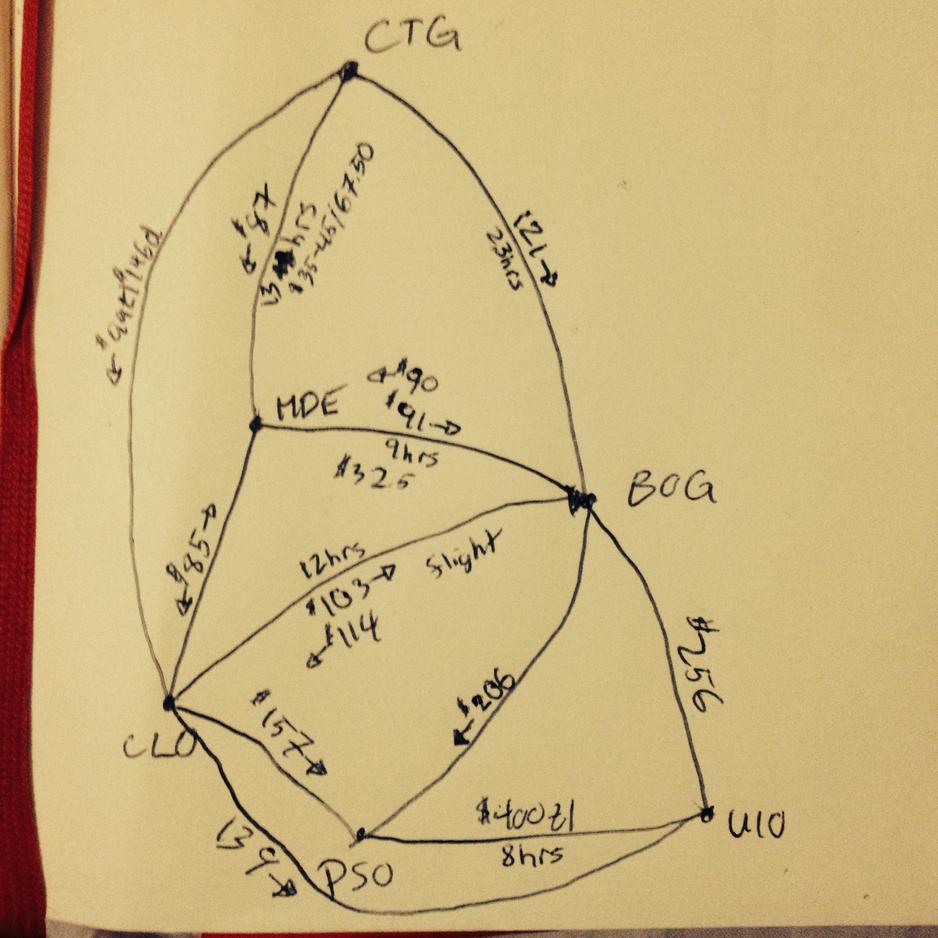 CTG
← $87
13 hrs
$35-45/67.50
121 →
23hrs
MDE
← $90
$91 →
9hrs
$32.5
BOG
← $85 →
12hrs
flight
$103 →
← $114
$256
← $206
$157 →
CLO
139 →
PSO
8hrs
UIO